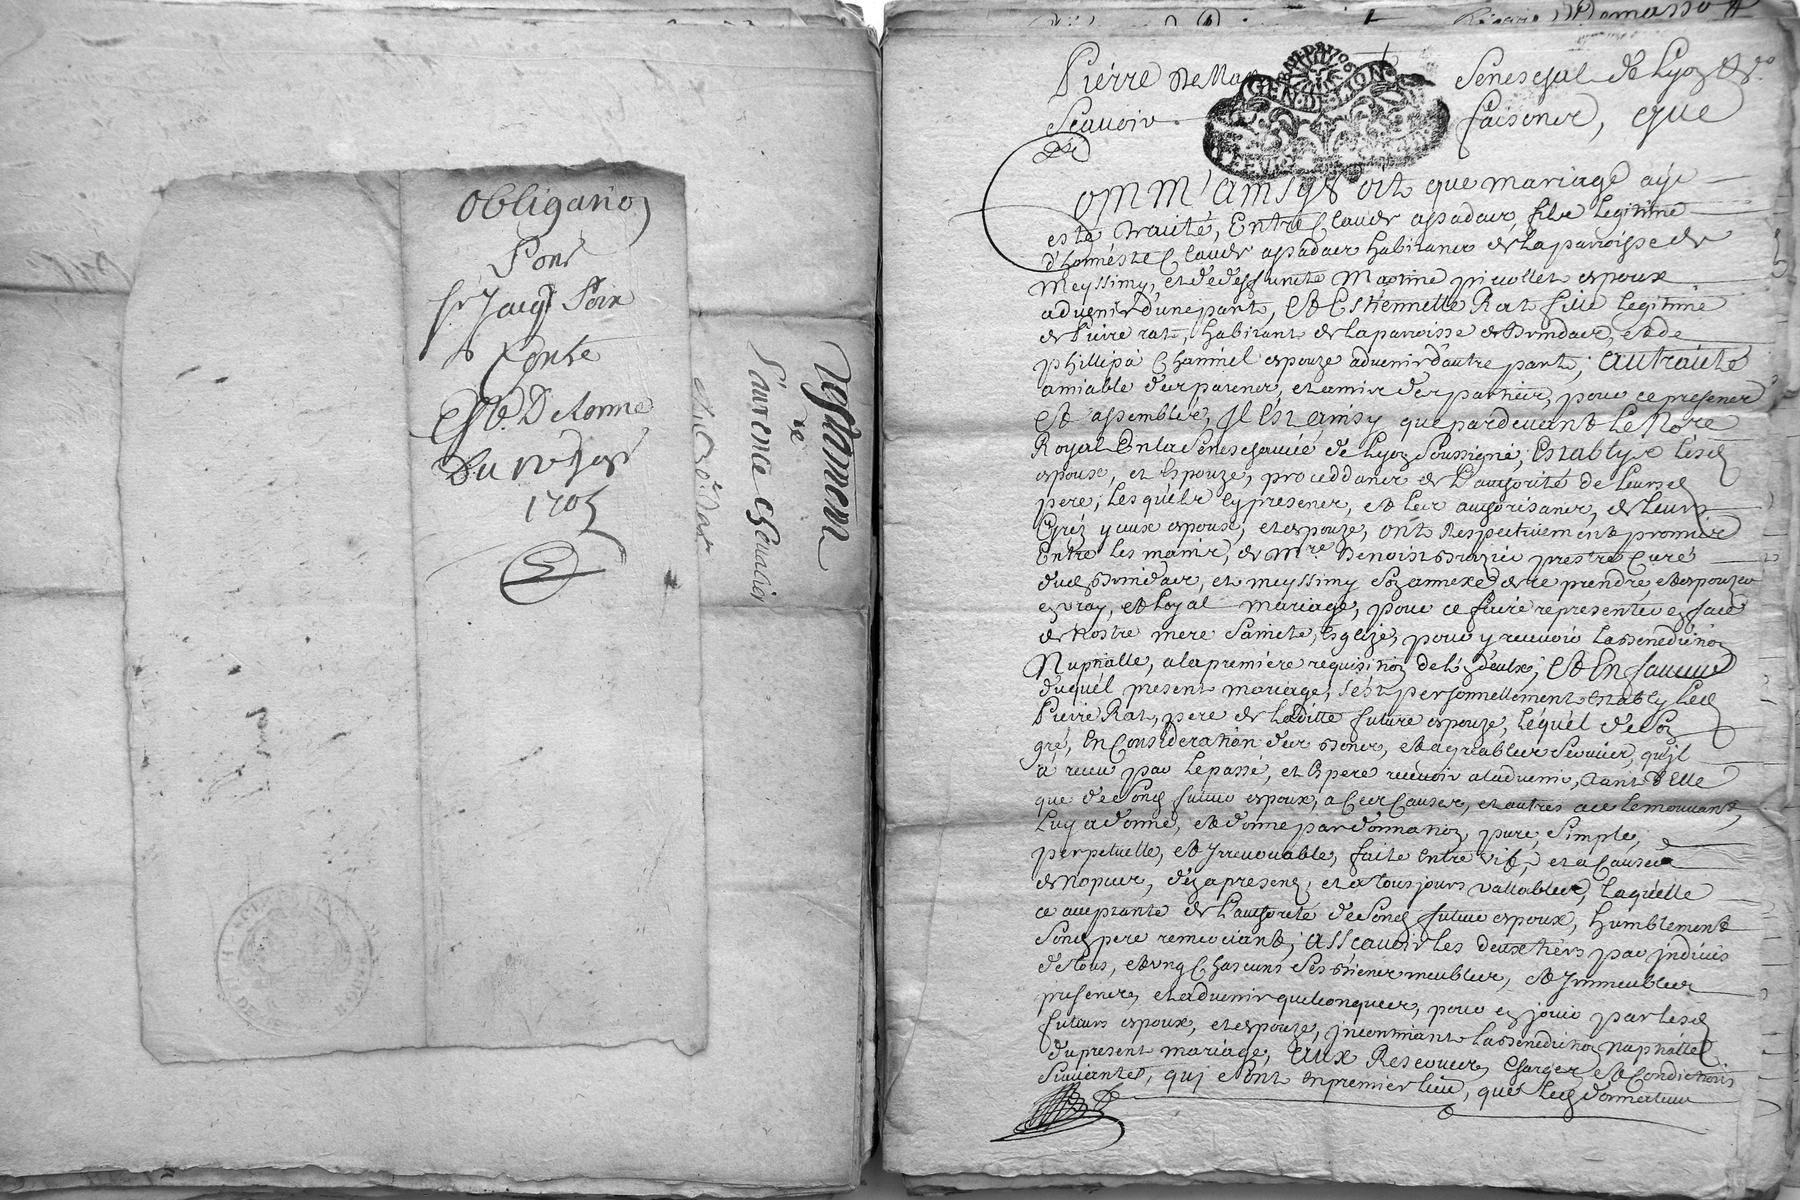 Obligation
Pour
Sr Jacq
Contre
Du
1705
Testament
de
Laurence Chevalier
Pierre De Mas Seneschal de Lyon &
GEN·DE·LION
Scavoir faisons, que
Comm'ainsy soit que mariage aye
esté traité, Entre Claude assadair, fils legitime
d'homeste Claude assadair habitant de la parroisse de
Meyssimy, et de deffuncte picollet espoux
advenir d'une part, Et Estiennette Rat fille legitime
de Pierre rat, habitant de la parroisse de Brindas, et de
phillipa Chaminel espouze advenir d'autre part; au traité
amiable des parens, et amis des parties, pour ce presens
Et assemblés, Il est ainsy que pardevant le Notre
Royal En la Seneschaucée de Lyon Soussigné, Establys lesd
espoux, et Espouze, proceddants de l'authorité de leursd
pere, lesquels cy presens, et les authorisans, de leurs
grez yceux espoux, et espouze, ont Respectivement promis
Entre les mains, de Mre Benoist prestre Curé
dud Brindas, et meyssimy son annexe de se prendre, et espouzer
en vray, et loyal mariage, pour ce faire representer en face
de Nostre mere Saincte Esglize, pour y recevoir la benediction
Nuptialle, a la premiere requisition de l'un d'eulx; Et En faveur
duquel present mariage, s'est personnellement estably led
Pierre Rat, pere de laditte future espouze, lequel de son
gré, En Consideration des bons, et agreables services, qu'il
a receu par le passé, et Espere recevoir a l'advenir, tant d'Elle
que de sond futur espoux, a Ces Causes, et autres a ce le mouvant,
luy a donné, et donne par donnation, pure, Simple,
perpetuelle, et Irrevocable, faite entre vifs, et a Cause
de nopces, dez a present, et a tousjours vallable, laquelle
ce acceptante de l'authorité de sond futur espoux, humblement
sond pere remerciant; assçavoir les deux tiers par indivis
de tous, et ung Chascuns ses biens meubles, et Immeubles
presens, et advenir quelconques, pour en jouir par lesd
futurs espoux, et espouze, incontinant la benediction Nuptialle
du present mariage, aux Reserves, Charges, et Conditions
Suivantes, qui sont En premier lieu, que led donnateur